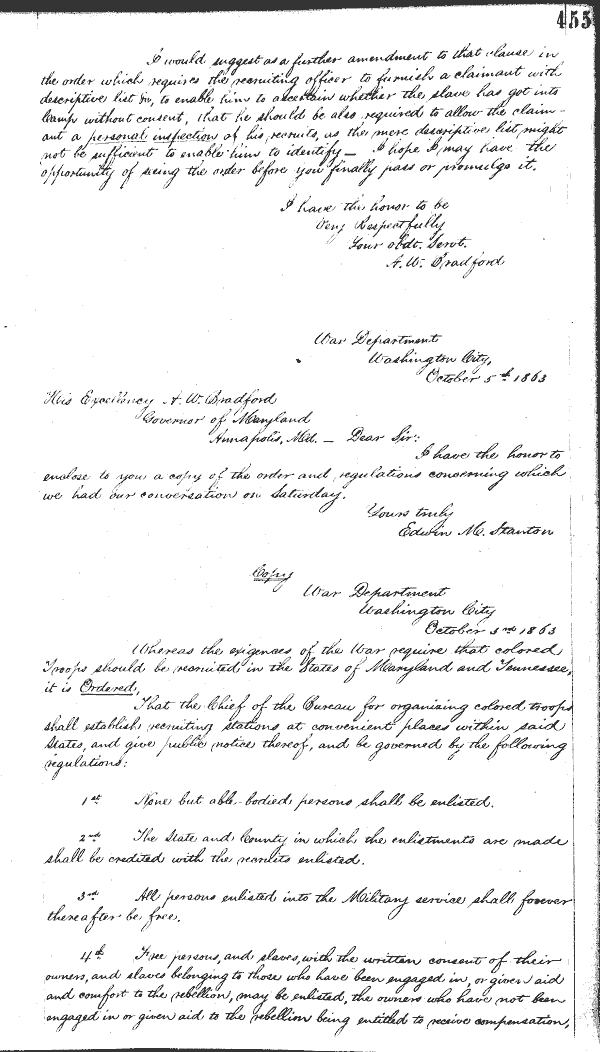 455
I would suggest as a further amendment to that clause in
the order which requires the recruiting officer to furnish a claimant with
descriptive list &c, to enable him to ascertain whether the slave has got into
Camp without consent, that he should be also required to allow the claim-
ant a personal inspection of his recruits, as the mere descriptive list might
not be sufficient to enable him to identify — I hope I may have the
opportunity of seeing the order before you finally pass or promulge it.
I have the honor to be
Very Respectfully
Your obdt. Servt.
A. W. Bradford
War Department
Washington City,
October 5th 1863
His Excellency A. W. Bradford
Governor of Maryland
Annapolis, Md. — Dear Sir:
I have the honor to
enclose to you a copy of the order and regulations concerning which
we had our conversation on Saturday.
Yours truly
Edwin M. Stanton
Copy
War Department
Washington City
October 3rd 1863
Whereas the exigences of the War require that colored
Troops should be recruited in the States of Maryland and Tennessee,
it is Ordered,
That the Chief of the Bureau for organizing colored troops
shall establish recruiting stations at convenient places within said
States, and give public notice thereof, and be governed by the following
regulations:
1st None but able-bodied persons shall be enlisted.
2nd The State and County in which the enlistments are made
shall be credited with the recruits enlisted.
3rd All persons enlisted into the Military service shall forever
thereafter be free.
4th Free persons, and slaves, with the written consent of their
owners, and slaves belonging to those who have been engaged in, or given aid
and comfort to the rebellion, may be enlisted, the owners who have not been
engaged in or given aid to the rebellion being entitled to receive compensation,